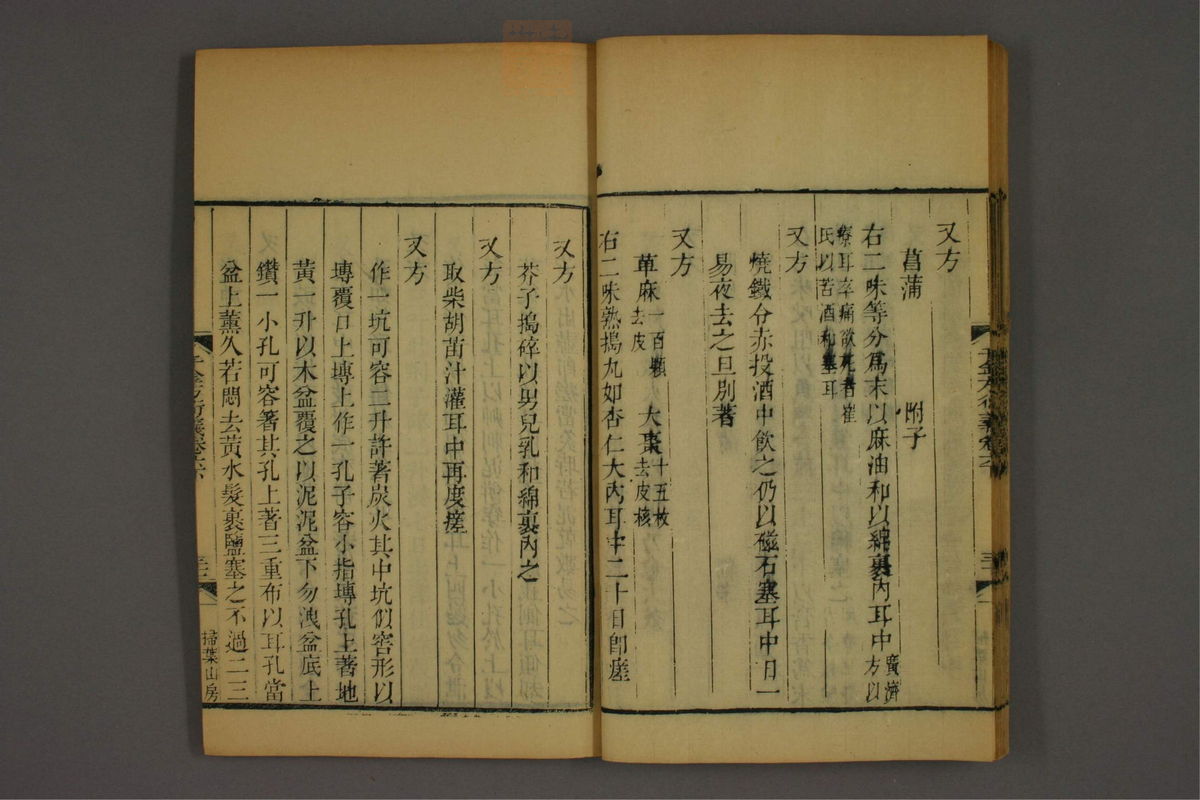 又方
菖蒲 附子
右二味等分爲末以麻油和以綿裹內耳中廣濟方以
療耳卒痛欲死者崔氏以苦酒和塞耳
又方
燒鐵令赤投酒中飲之仍以磁石塞耳中日一
易夜去之旦別著
又方
萆麻一百顆去皮 大棗十五枚去皮核
右二味熟搗丸如杏仁大內耳中二十日即瘥
又方
芥子搗碎以男兒乳和綿裹內之
又方
取柴胡苗汁灌耳中再度瘥
又方
作一坑可容二升許著炭火其中坑似窖形以
塼覆口上塼上作一孔子容小指塼孔上著地
黃一升以木盆覆之以泥泥盆下勿洩盆底上
鑽一小孔可容箸其孔上著三重布以耳孔當
盆上薰久若悶去黃水髮裹鹽塞之不過二三
掃葉山房